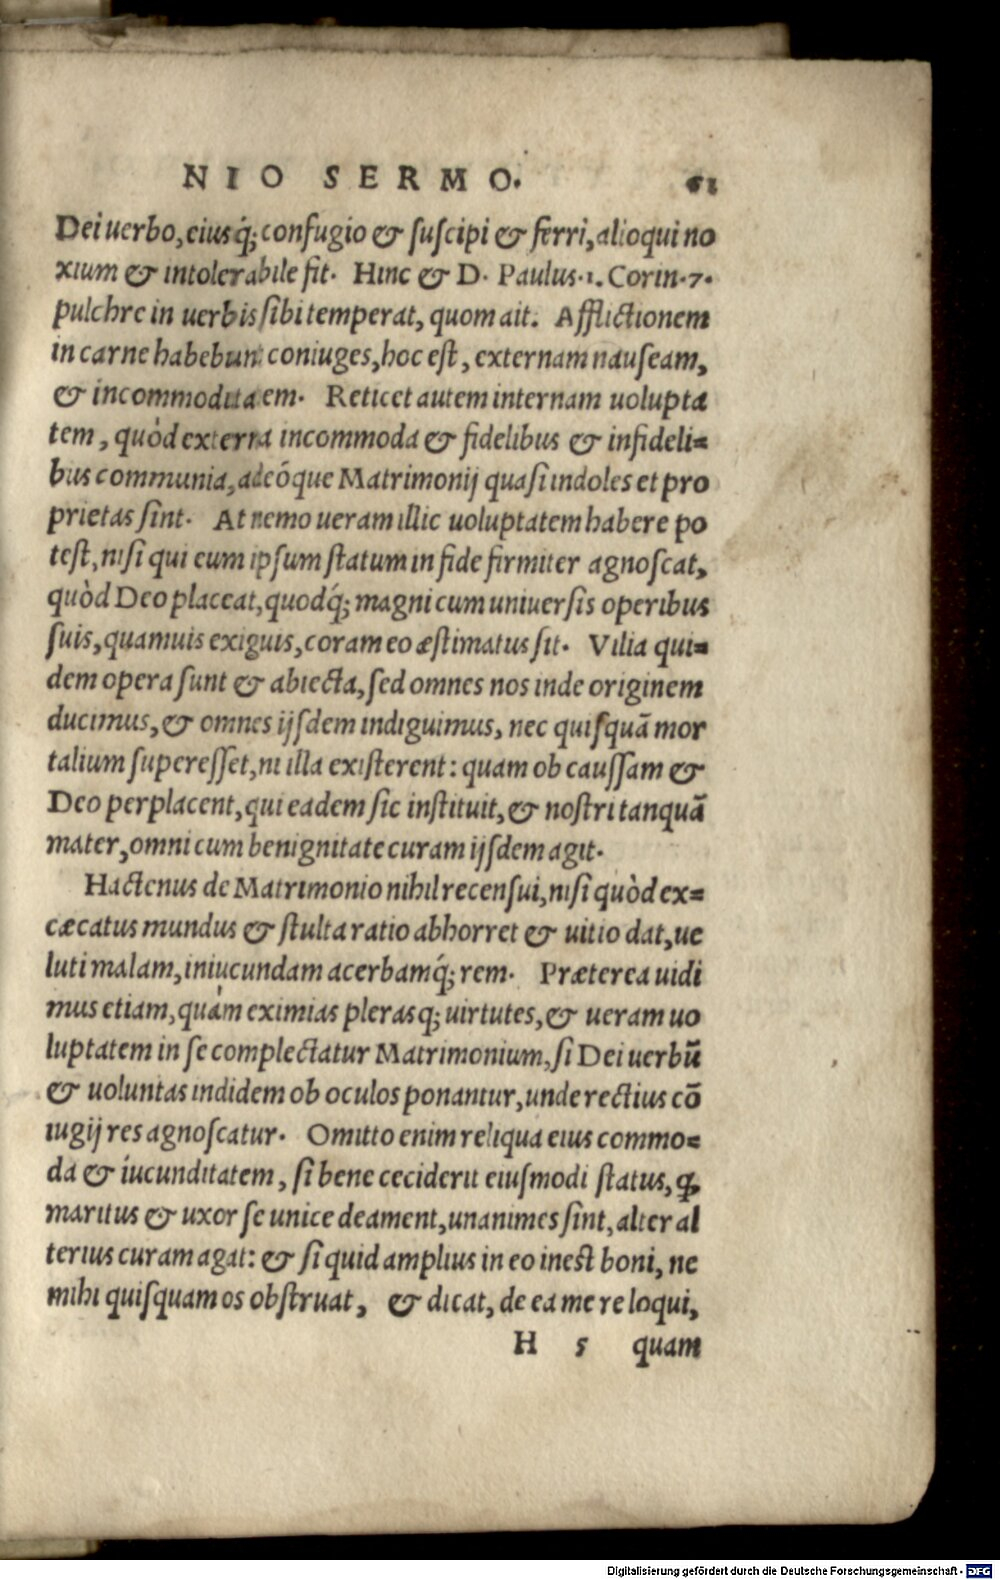 NIO SERMO. 61
Dei uerbo, eiusq́; confugio & suscipi & ferri, alioqui no
xium & intolerabile fit. Hinc & D. Paulus.1. Corin.7.
pulchre in uerbis sibi temperat, quom ait. Afflictionem
in carne habebunt coniuges, hoc est, externam nauseam,
& incommoditatem. Reticet autem internam uolupta
tem, quòd externa incommoda & fidelibus & infideli=
bus communia, adeóque Matrimonij quasi indoles et pro
prietas sint. At nemo ueram illic uoluptatem habere po
test, nisi qui eum ipsum statum in fide firmiter agnoscat,
quòd Deo placeat, quodq́; magni cum uniuersis operibus
suis, quamuis exiguis, coram eo æstimatus sit. Vilia qui=
dem opera sunt & abiecta, sed omnes nos inde originem
ducimus, & omnes ijsdem indiguimus, nec quisquã mor
talium superesset, ni illa existerent: quam ob caussam &
Deo perplacent, qui eadem sic instituit, & nostri tanquã
mater, omni cum benignitate curam ijsdem agit.
Hactenus de Matrimonio nihil recensui, nisi quòd ex=
cæcatus mundus & stulta ratio abhorret & uitio dat, ue
luti malam, iniucundam acerbamq́; rem. Præterea uidi
mus etiam, quàm eximias plerasq; uirtutes, & ueram uo
luptatem in se complectatur Matrimonium, si Dei uerbũ
& uoluntas indidem ob oculos ponantur, unde rectius cõ
iugij res agnoscatur. Omitto enim reliqua eius commo=
da & iucunditatem, si bene ceciderit eiusmodi status, ꝙ
maritus & uxor se unice deament, unanimes sint, alter al
terius curam agat: & si quid amplius in eo inest boni, ne
mihi quisquam os obstruat, & dicat, de ea me re loqui,
H 5 quam
Digitalisierung gefördert durch die Deutsche Forschungsgemeinschaft - DFG